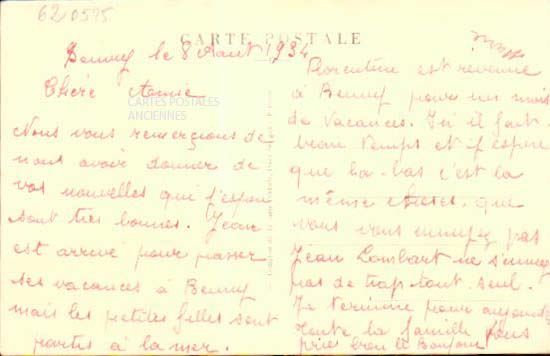 620595
CARTE POSTALE
le 8 Aout 1934
Chère Amie
CARTES POSTALES
ANCIENNES
Nous vous remerçions de
nous avoir donner de
vos nouvelles qui
sont très bonnes. Jean
est arrivé pour passer
ses vacances à Berny
mais les petites filles sont
parties à la mer.
Florentine est revenue
à Berny pour un mois
de vacances. Ici il fait
beau temps et j'espère
que la-bas c'est la
même choses, que
vous vous ennuyez pas
Jean Lombart ne s'ennuye
pas de trop tout seul.
Je termine pour aujourd'
toute la famille vous
le Bonjour